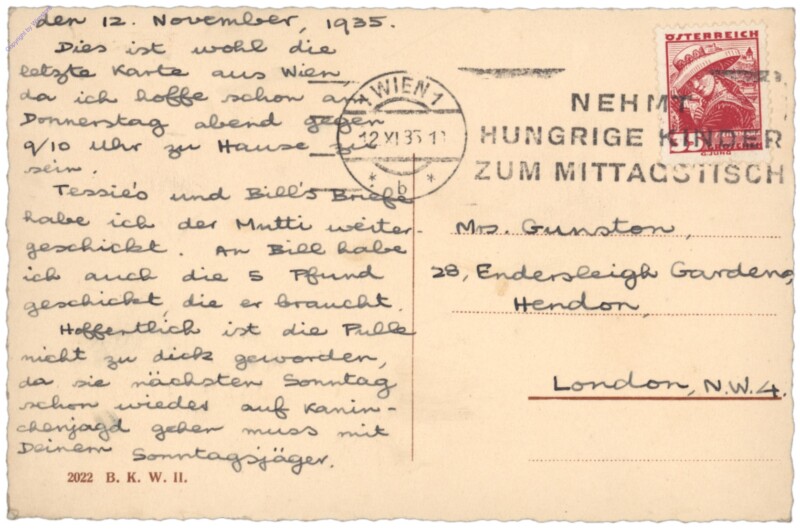 den 12. November, 1935.
Dies ist wohl die
letzte Karte aus Wien
da ich hoffe schon am
Donnerstag abend gegen
9/10 Uhr zu Hause zu
sein.
Tessie's und Bill's Briefe
habe ich der Mutti weiter-
geschickt. An Bill habe
ich auch die 5 Pfund
geschickt, die er braucht.
Hoffentlich ist die Pulle
nicht zu dick geworden,
da sie nächsten Sonntag
schon wieder auf Kanin-
chenjagd gehen muss mit
Deinem Sonntagsjäger.
2022 B. K. W. II.
WIEN 1
12 XI 35
* b *
NEHMT
HUNGRIGE KINDER
ZUM MITTAGSTISCH
ÖSTERREICH
G. JUNG
Mrs. Gunston,
28, Endersleigh Gardens,
Hendon,
London, N.W.4.